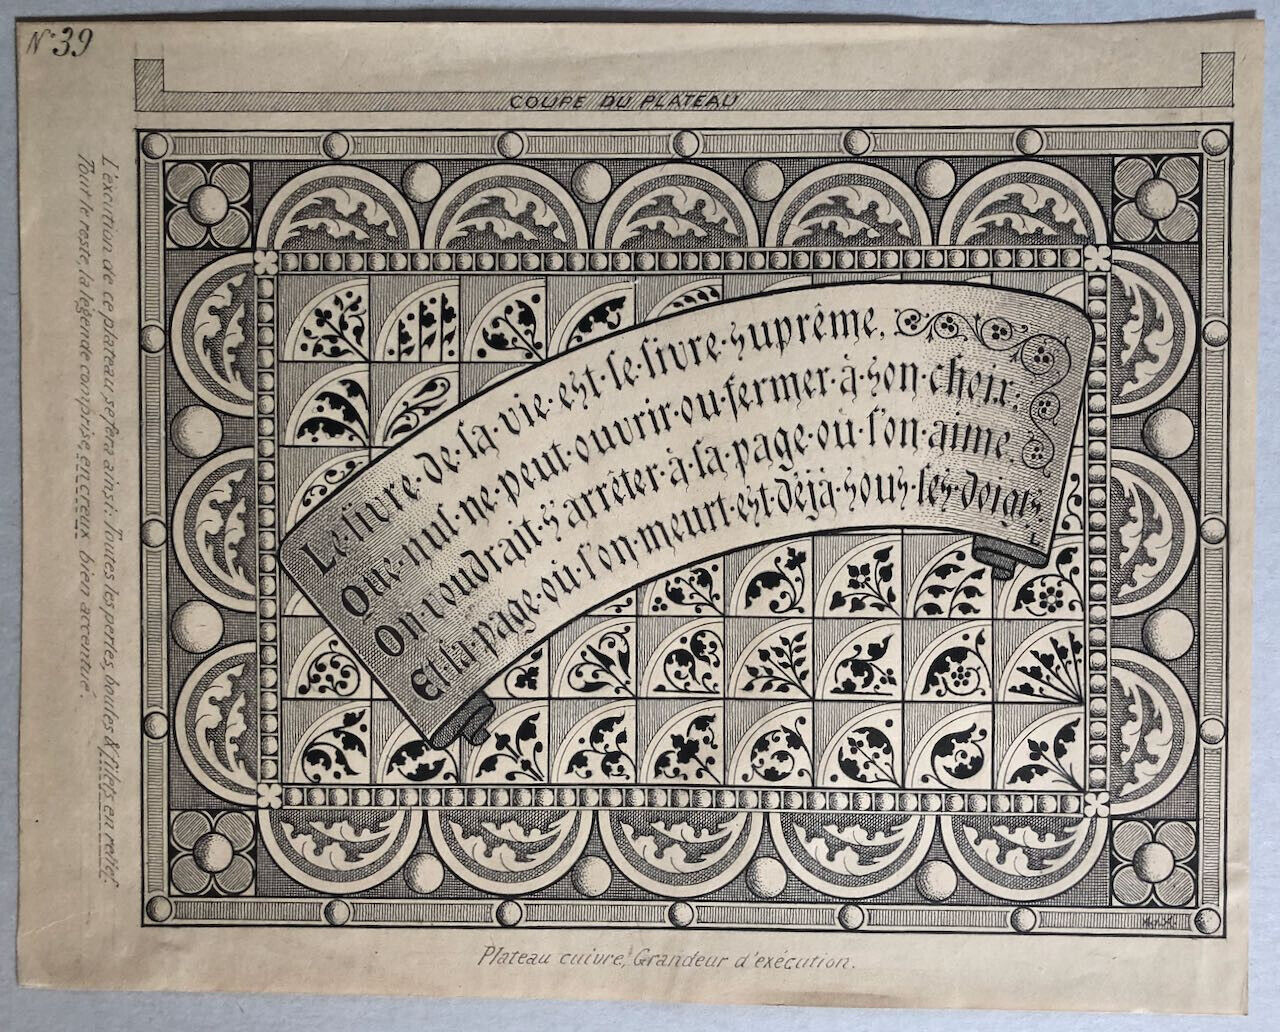 N° 39
COUPE DU PLATEAU
Le·livre·de·la·vie·est·le·livre·suprême.
Que·nul·ne·peut·ouvrir·ou·fermer·à·son·choix;
On voudrait·s'arrêter·à·la·page·où·l'on·aime.
Et·la·page·où·l'on·meurt·est·déjà·sous·les·doigts.
L.
L'exécution de ce plateau se fera ainsi: Toutes les perles, boules & filets en relief.
Tout le reste, la légende comprise, en creux bien accentué.
Plateau cuivre, Grandeur d'exécution.